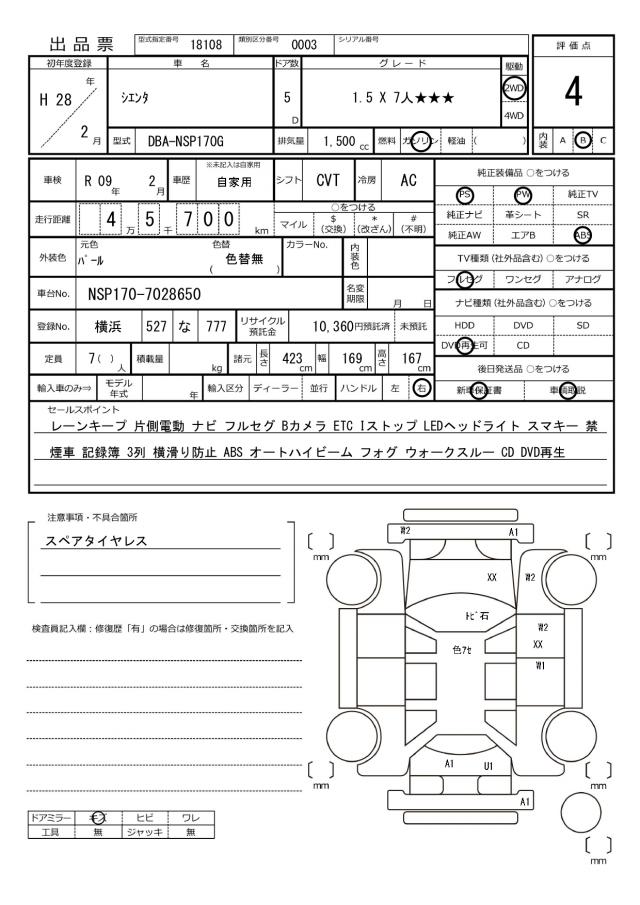 出品票 型式指定番号 18108 類別区分番号 0003 シリアル番号
評価点
4
内装 A B C
初年度登録 車名 ドア数 グレード 駆動
H 28 年 2 月
シエンタ
5 D
1.5 X 7人★★★
2WD
4WD
型式 DBA-NSP170G 排気量 1,500 cc 燃料 ガソリン 軽油 ( )
車検 R 09 年 2 月 車歴 ※未記入は自家用 自家用 シフト CVT 冷房 AC
走行距離 4 万 5 千 7 0 0 km
○をつける
マイル $ (交換) * (改ざん) # (不明)
外装色 元色 パール 色替 ( 色替無 ) カラーNo. 内装色
車台No. NSP170-7028650 名変期限 月 日
登録No. 横浜 527 な 777 リサイクル預託金 10,360円預託済 未預託
定員 7( )人 積載量 kg 諸元 長さ 423 cm 幅 169 cm 高さ 167 cm
輸入車のみ⇒ モデル年式 年 輸入区分 ディーラー 並行 ハンドル 左 右
純正装備品 ○をつける
PS PW 純正TV
純正ナビ 革シート SR
純正AW エアB ABS
TV種類 (社外品含む) ○をつける
フルセグ ワンセグ アナログ
ナビ種類 (社外品含む) ○をつける
HDD DVD SD
DVD再生可 CD
後日発送品 ○をつける
新車保証書 車輌取説
セールスポイント
レーンキープ 片側電動 ナビ フルセグ Bカメラ ETC Iストップ LEDヘッドライト スマキー 禁
煙車 記録簿 3列 横滑り防止 ABS オートハイビーム フォグ ウォークスルー CD DVD再生
注意事項・不具合箇所
スペアタイヤレス
検査員記入欄：修復歴「有」の場合は修復箇所・交換箇所を記入
ドアミラー キズ ヒビ ワレ
工具 無 ジャッキ 無
W2 A1
[ ] mm
[ ] mm
XX W2
トビ石
W2
色アセ XX
W1
A1 U1
[ ] mm
[ ] mm
A1
[ ] mm